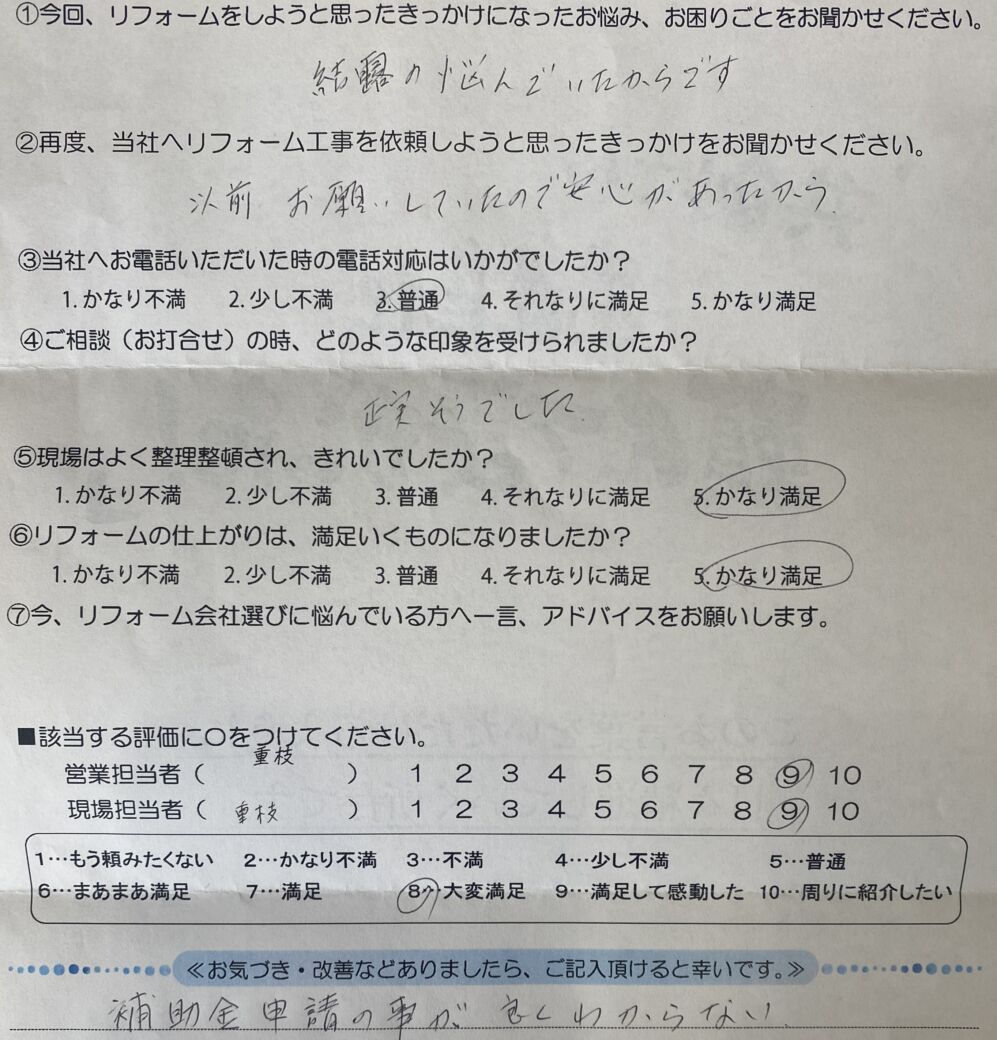 ①今回、リフォームをしようと思ったきっかけになったお悩み、お困りごとをお聞かせください。
結露の悩んでいたからです
②再度、当社へリフォーム工事を依頼しようと思ったきっかけをお聞かせください。
以前 お願いしていたので安心があったから.
③当社へお電話いただいた時の電話対応はいかがでしたか?
1. かなり不満 2. 少し不満 3. 普通 4. それなりに満足 5. かなり満足
④ご相談（お打合せ）の時、どのような印象を受けられましたか?
正実そうでした.
⑤現場はよく整理整頓され、きれいでしたか?
1. かなり不満 2. 少し不満 3. 普通 4. それなりに満足 5. かなり満足
⑥リフォームの仕上がりは、満足いくものになりましたか?
1. かなり不満 2. 少し不満 3. 普通 4. それなりに満足 5. かなり満足
⑦今、リフォーム会社選びに悩んでいる方へ一言、アドバイスをお願いします。
■該当する評価に〇をつけてください。
営業担当者（ 重枝 ） 1 2 3 4 5 6 7 8 9 10
現場担当者（ 重枝 ） 1 2 3 4 5 6 7 8 9 10
1…もう頼みたくない 2…かなり不満 3…不満 4…少し不満 5…普通
6…まあまあ満足 7…満足 8…大変満足 9…満足して感動した 10…周りに紹介したい
≪お気づき・改善などありましたら、ご記入頂けると幸いです。≫
補助金申請の事が良くわからない.